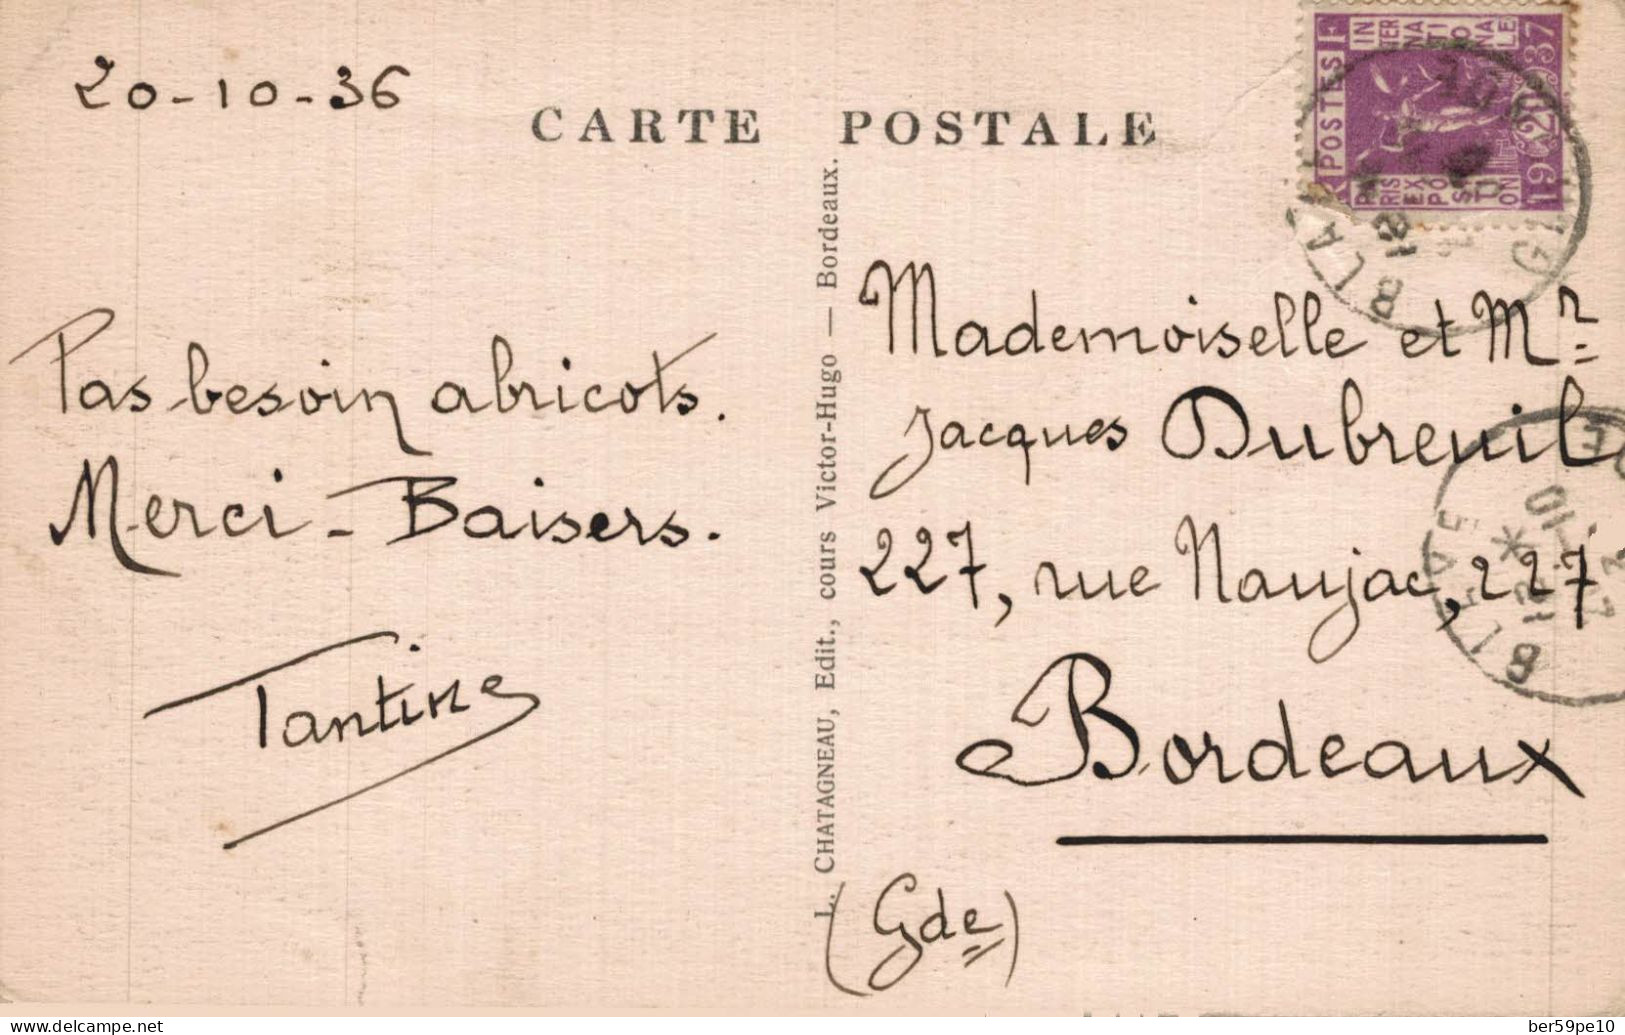 20-10-36
CARTE POSTALE
POSTES
INTERNATIONALE
PARIS EXPOSITION
1937
20
Pas besoin abricots.
Merci - Baisers.
Tantine
L. CHATAGNEAU, Edit., cours Victor-Hugo — Bordeaux.
Mademoiselle et Mr
Jacques Dubreuil
227, rue Naujac, 227
Bordeaux
(Gde)
delcampe.net
ber59pe10